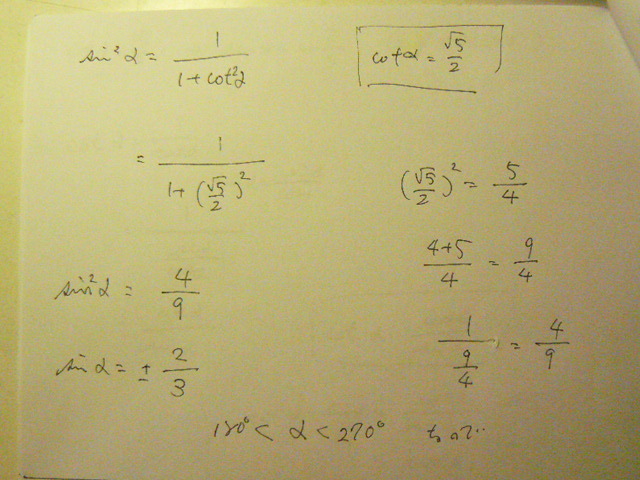 sin²α = 1/(1+cot²α)
cotα = √5/2
= 1/(1+(√5/2)²)
(√5/2)² = 5/4
(4+5)/4 = 9/4
sin²α = 4/9
1/(9/4) = 4/9
sin α = ± 2/3
180° < α < 270°